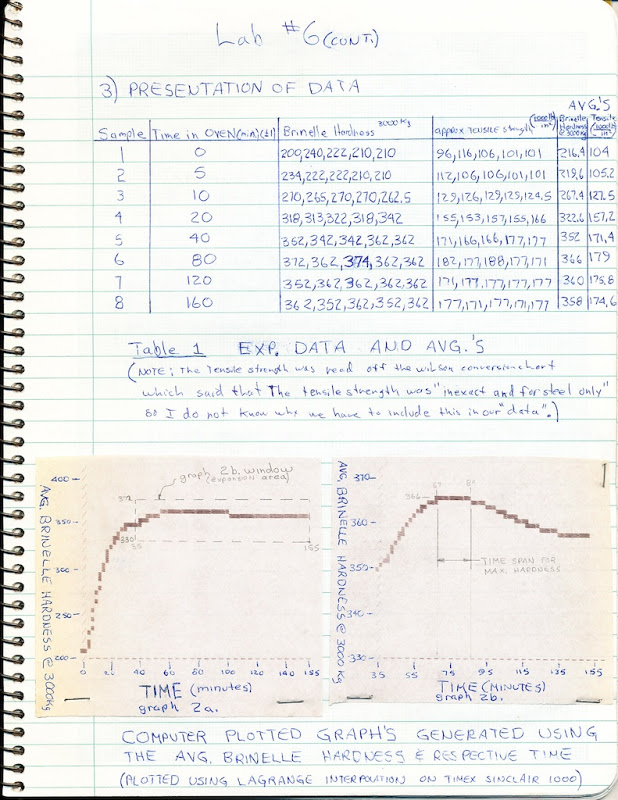 Lab #6 (CONT.)
3) PRESENTATION OF DATA
AVG.'S
Sample | Time in OVEN (min) (±1) | Brinelle Hardness 3000 Kg | approx TENSILE strength (1000 lb/in²) | Brinelle Hardness @ 3000 Kg | Tensile (1000 lb/in²)
1 | 0 | 200, 240, 222, 210, 210 | 96, 116, 106, 101, 101 | 216.4 | 104
2 | 5 | 234, 222, 222, 210, 210 | 112, 106, 106, 101, 101 | 219.6 | 105.2
3 | 10 | 270, 265, 270, 270, 262.5 | 129, 126, 129, 129, 124.5 | 267.4 | 127.5
4 | 20 | 318, 313, 322, 318, 342 | 155, 153, 157, 155, 166 | 322.6 | 157.2
5 | 40 | 352, 342, 342, 362, 362 | 171, 166, 166, 177, 177 | 352 | 171.4
6 | 80 | 372, 362, 374, 362, 362 | 182, 177, 188, 177, 171 | 366 | 179
7 | 120 | 352, 362, 362, 362, 362 | 171, 177, 177, 177, 177 | 360 | 175.8
8 | 160 | 362, 352, 362, 352, 362 | 177, 171, 177, 171, 177 | 358 | 174.6
Table 1 EXP. DATA AND AVG.'S
(NOTE; The Tensile strength was read off the wilson conversion chart
which said that The tensile strength was "inexact and for steel only"
so I do not know why we have to include this in our "data".)
AVG. BRINELLE HARDNESS @ 3000 Kg
400
350
300
250
200
graph 2b. window
(expansion area)
372
330
35
155
0 20 40 60 80 100 120 140 155
TIME (minutes)
graph 2a.
AVG. BRINELLE HARDNESS @ 3000 Kg
370
360
350
340
330
366
67
TIME SPAN FOR
MAX. HARDNESS
35 55 75 95 115 135 155
TIME (MINUTES)
graph 2b.
COMPUTER PLOTTED GRAPH'S GENERATED USING
THE AVG. BRINELLE HARDNESS & RESPECTIVE TIME
(PLOTTED USING LAGRANGE INTERPOLATION ON TIMEX SINCLAIR 1000)